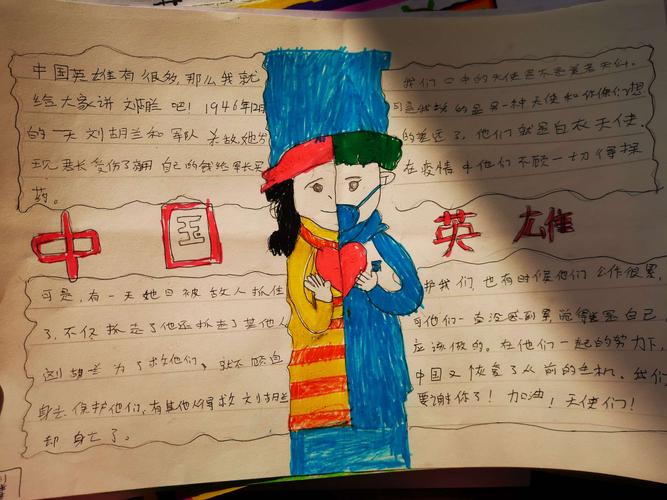 中国英雄有很多,那么我就
给大家讲刘胡兰吧!1946年12月
的一天刘胡兰和军队杀敌她发
现长受伤了用自己的钱给军长买
药。
我们口中的天使是不是美若天仙.
可我说的是另一种天使和你们想
的差远了,他们就是白衣天使.
在疫情中他们不顾一切得
中国英雄
可是,有一天她被敌人抓住
了.不仅抓走了他还抓走了其他人
刘胡兰为了救他们、就不顾自
身去保护他们,有其他人得救刘胡兰
却身亡了。
护我们,也有时候他们工作很累,
可他们一直没感到累觉得是自己
应该做的。在他们一起的努力下,
中国又恢复了从前的生机.我们
要谢你了!加油!天使们!